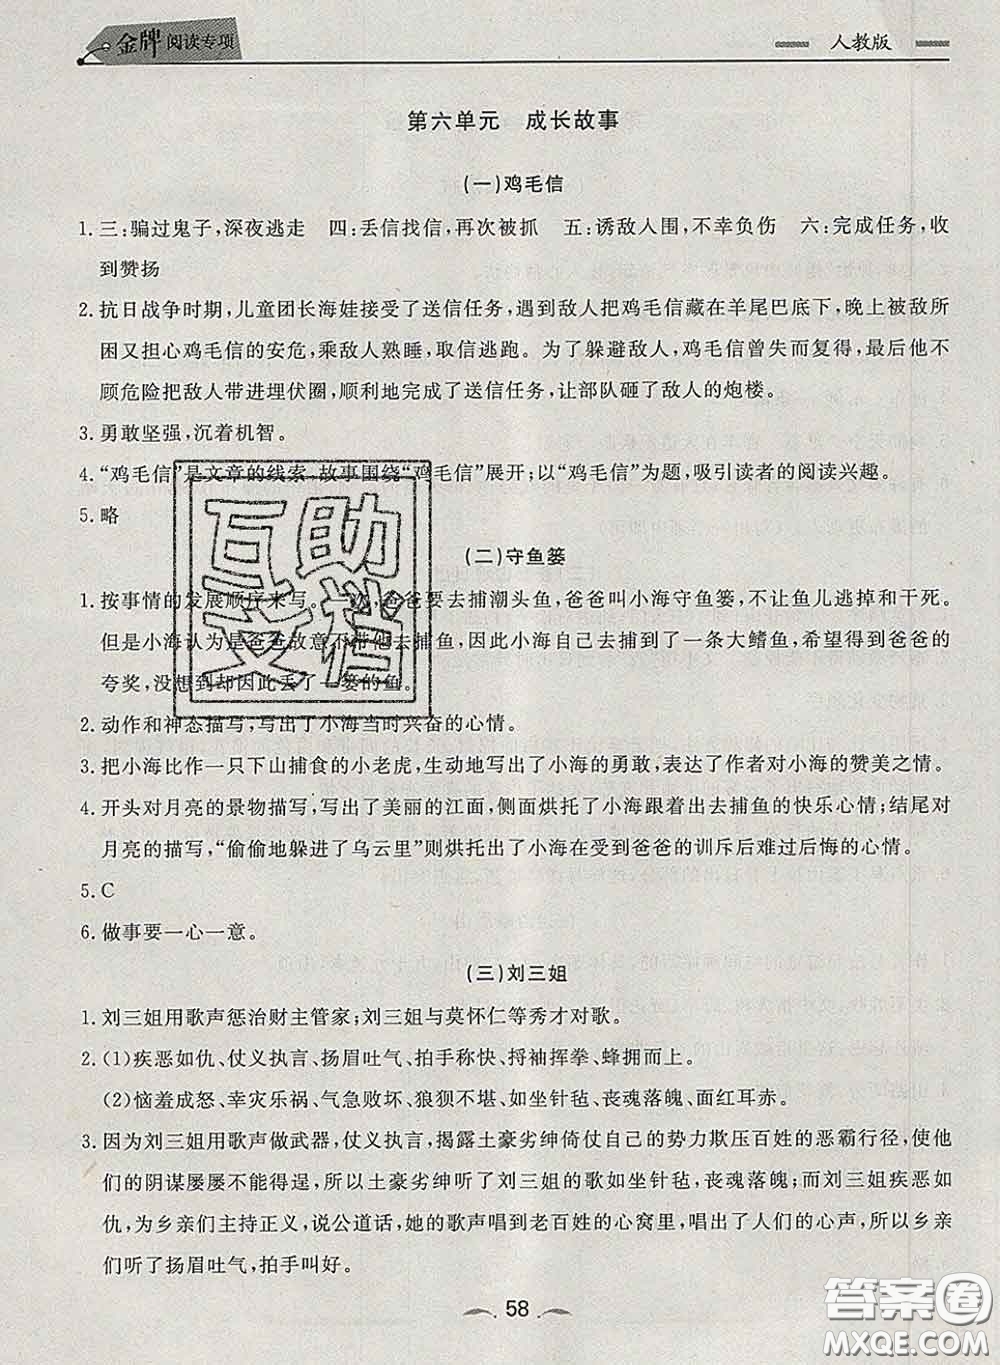 金牌阅读专项
人教版
第六单元　成长故事
(一)鸡毛信
1. 三:骗过鬼子,深夜逃走　四:丢信找信,再次被抓　五:诱敌人围,不幸负伤　六:完成任务,收
到赞扬
2. 抗日战争时期,儿童团长海娃接受了送信任务,遇到敌人把鸡毛信藏在羊尾巴底下,晚上被所
困又担心鸡毛信的安危,乘敌人熟睡,取信逃跑。为了躲避敌人,鸡毛信曾失而复得,最后他不
顾危险把敌人带进埋伏圈,顺利地完成了送信任务,让部队砸了敌人的炮楼。
3. 勇敢坚强,沉着机智。
4. “鸡毛信”是文章的线索,故事围绕“鸡毛信”展开;以“鸡毛信”为题,吸引读者的阅读兴趣。
5. 略
(二)守鱼篓
1. 按事情的发展顺序来写。 ,爸爸要去捕潮头鱼,爸爸叫小海守鱼篓,不让鱼儿逃掉和干死。
但是小海认为是爸爸故意不带他去捕鱼,因此小海自己去捕到了一条大鳍鱼,希望得到爸爸的
夸奖,没想到却因此丢了一篓的鱼。
2. 动作和神态描写,写出了小海当时兴奋的心情。
3. 把小海比作一只下山捕食的小老虎,生动地写出了小海的勇敢,表达了作者对小海的赞美之情。
4. 开头对月亮的景物描写,写出了美丽的江面,侧面烘托了小海跟着出去捕鱼的快乐心情;结尾对
月亮的描写,“偷偷地躲进了乌云里”则烘托出了小海在受到爸爸的训斥后难过后悔的心情。
5. C
6. 做事要一心一意。
(三)刘三姐
1. 刘三姐用歌声惩治财主管家;刘三姐与莫怀仁等秀才对歌。
2. (1)疾恶如仇、仗义执言、扬眉吐气、拍手称快、捋袖挥拳、蜂拥而上。
(2)恼羞成怒、幸灾乐祸、气急败坏、狼狈不堪、如坐针毡、丧魂落魄、面红耳赤。
3. 因为刘三姐用歌声做武器,仗义执言,揭露土豪劣绅倚仗自己的势力欺压百姓的恶霸行径,使他
们的阴谋屡屡不能得逞,所以土豪劣绅听了刘三姐的歌如坐针毡,丧魂落魄;而刘三姐疾恶如
仇,为乡亲们主持正义,说公道话,她的歌声唱到老百姓的心窝里,唱出了人们的心声,所以乡亲
们听了扬眉吐气,拍手叫好。
58
互助
文档
答案圈
MXQE.COM